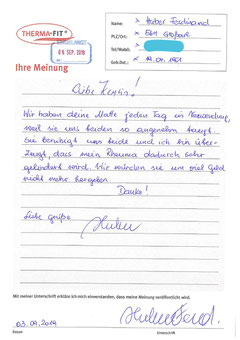 THERMA-FIT®
EINGELANGT
06. SEP. 2019
Ihre Meinung
Name: Huber Ferdinand
PLZ/Ort: 5611 Großarl
Tel/Mobil:
Geb.Dat.: 19.01.1961
Liebe Kerstin!
Wir haben deine Matte jeden Tag in Verwendung,
weil sie uns beiden so angenehm taugt.
Sie beruhigt uns beide und ich bin über-
zeugt, dass mein Rheuma dadurch sehr
gelindert wird. Wir würden sie um viel Geld
nicht mehr hergeben.
Danke!
Liebe Grüße
Huber
Mit meiner Unterschrift erkläre ich mich einverstanden, dass meine Meinung veröffentlicht wird.
03.09.2019
Huber Ferd.
Datum
Unterschrift